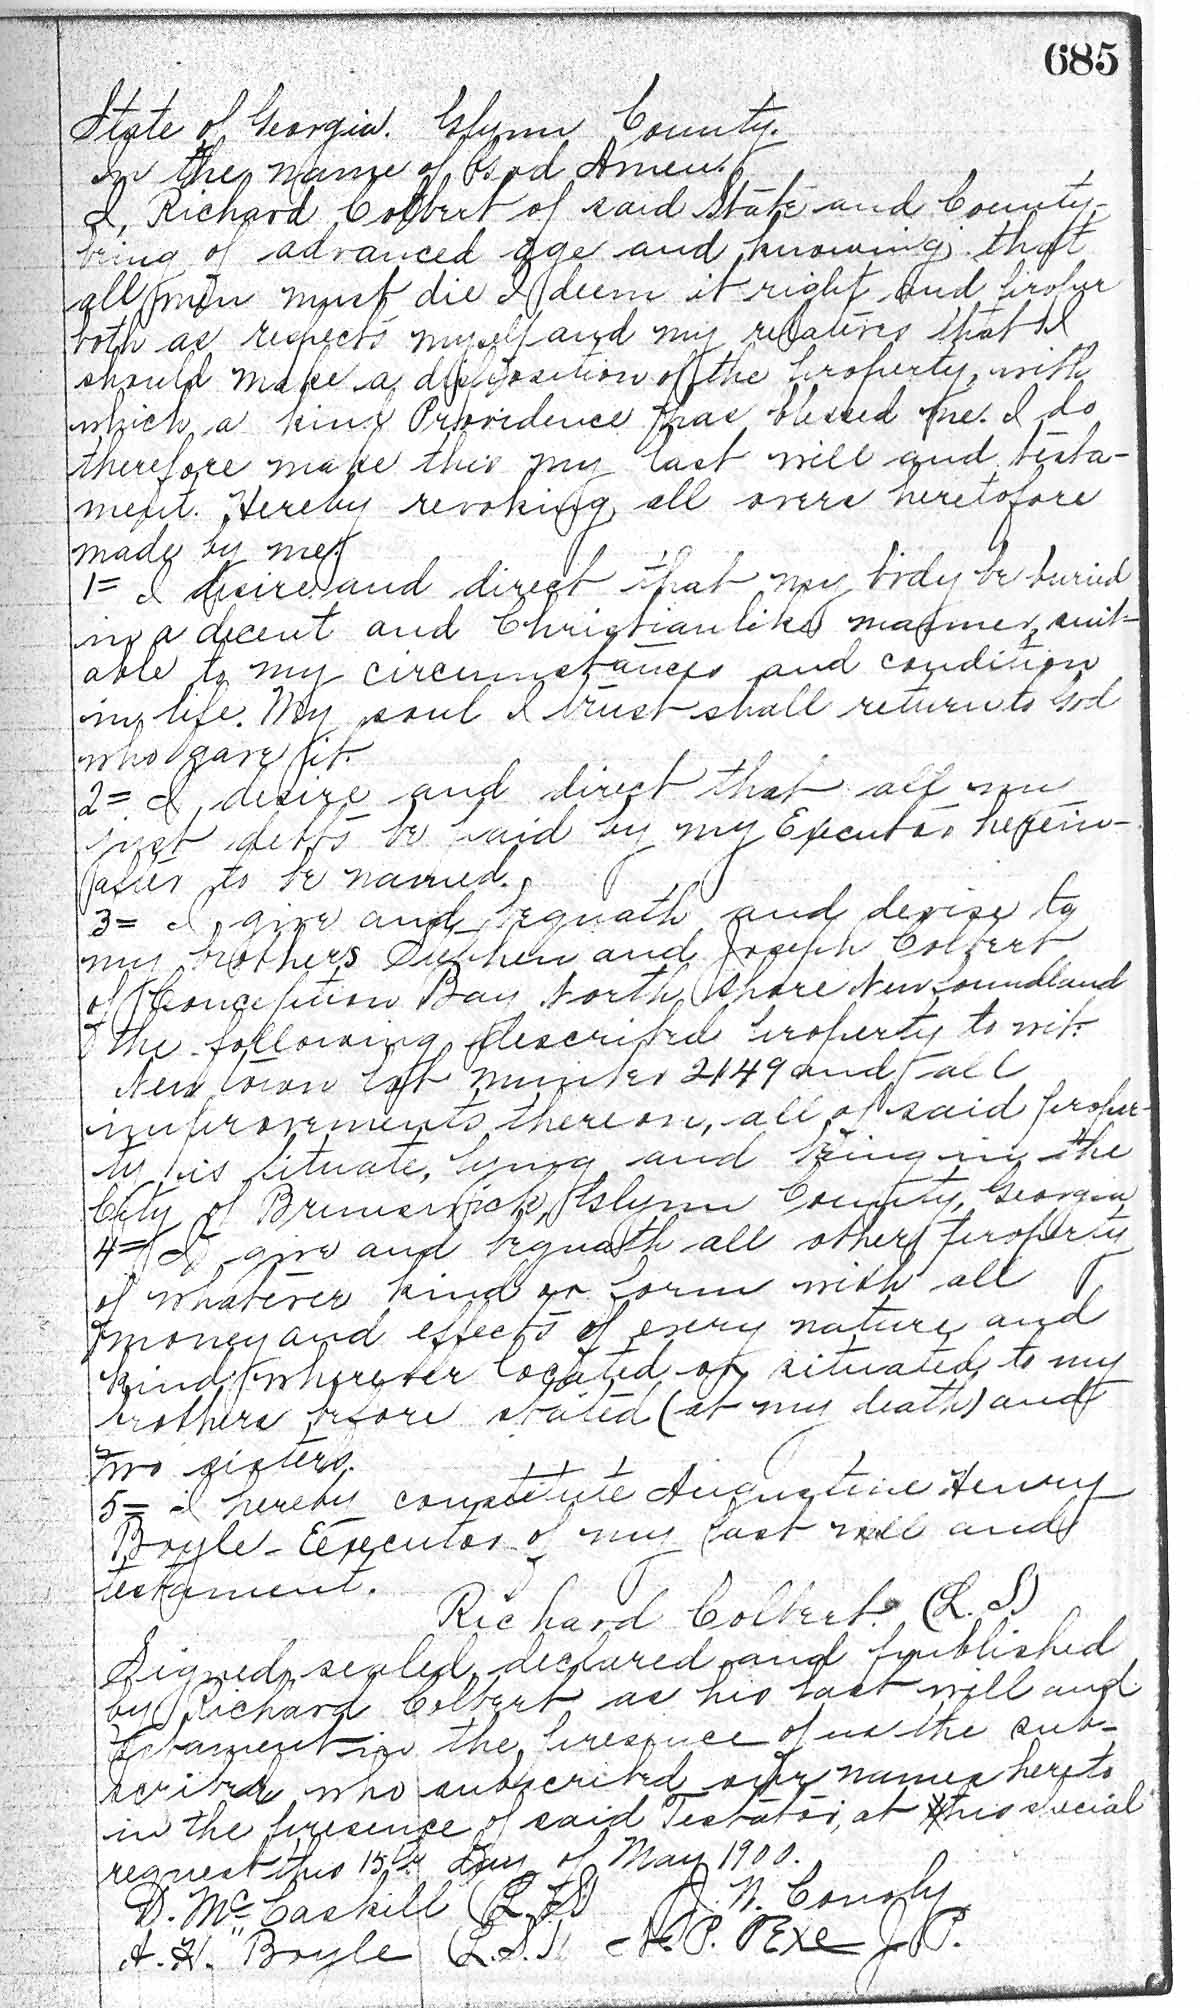 685
State of Georgia. Glynn County.
In the name of God Amen.
I, Richard Colbert of said State and County
being of advanced age and knowing that
all men must die I deem it right and proper
both as respects myself and my relatives that I
should make a disposition of the property, with
which a kind Providence has blessed me. I do
therefore make this my last will and testa-
ment. Hereby revoking all overs heretofore
made by me.
1= I desire and direct that my body be buried
in a decent and Christianlike manner, suit-
able to my circumstances and condition
in life. My soul I trust shall return to God
who gave it.
2= I desire and direct that all my
just debts be paid by my Executor herein-
after to be named.
3= I give and bequath and devise to
my brothers Stephen and Joseph Colbert
of Conception Bay North Shore Newfoundland
the following described property to wit.
New town lot number 2149 and all
improvements thereon, all of said proper-
ty is situate, lying and being in the
City of Brunswick, Glynn County, Georgia
4= I give and bequath all other property
of whatever kind or form with all
money and effects of every nature and
kind wherever located or situated to my
brothers before stated (at my death) and
two sisters.
5= I hereby constitute Augustine Henry
Boyle Executor of my last will and
testament.
Richard Colbert. (L. S.)
Signed, sealed, declared and published
by Richard Colbert as his last will and
testament in the presence of us the sub-
scribers who subscribed our names hereto
in the presence of said Testator, at his special
request this 15th Day of May 1900.
D. McCaskill (L. S.) J. N. Conoly
A. H. Boyle (L. S.) N. P. Exe J P.